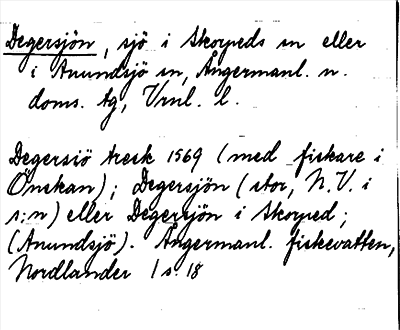 Degersjön, sjö i Skorpeds sn eller
i Anundsjö sn, Ångermanl. n.
doms. tg, Vrnl. l.
Degersiö tresk 1569 (med fiskare i
Önskan); Degersjön (stor, N.V. i
s:n) eller Degersjön i Skorped;
(Anundsjö). Ångermanl. fiskevatten,
Nordlander I s. 18